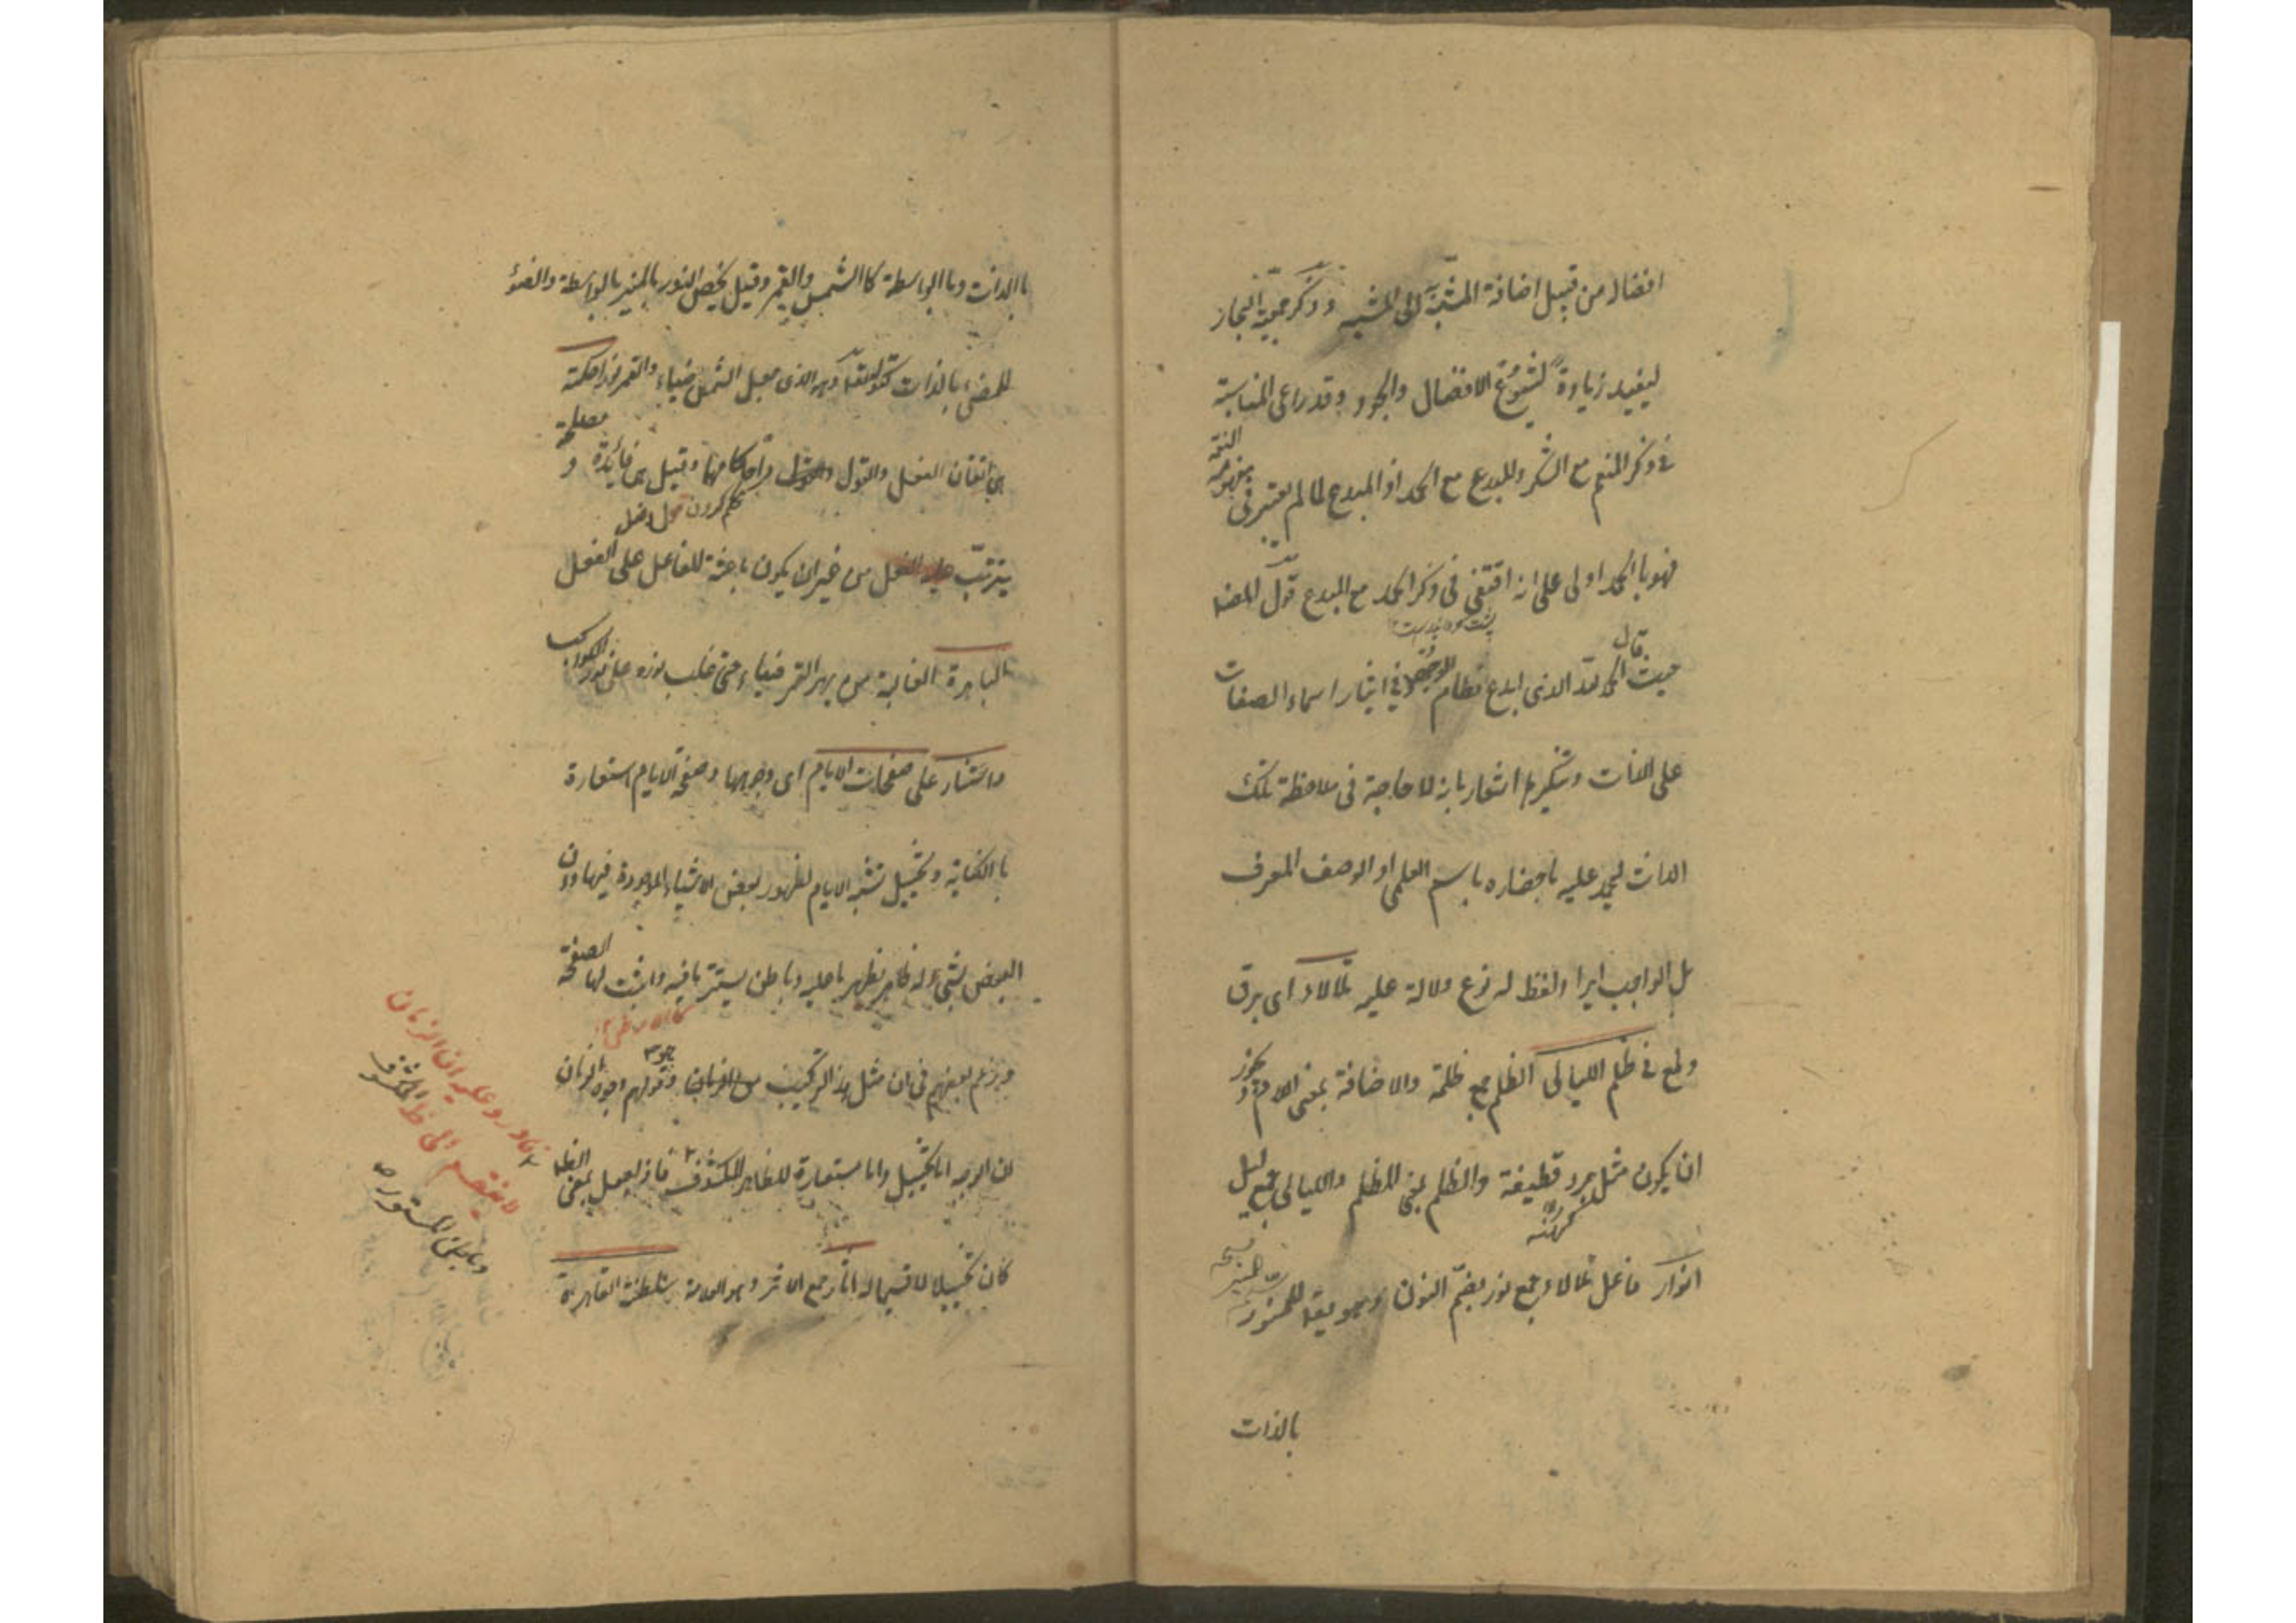 افضال من قبيل اضافة المشبه الى المشبه وذكر جمعية البحار
ليفيد زيادة لشيوع الافضال والجود وقد راعى المناسبة
فى ذكر المنعم مع الشكر والمبدع مع الحمد اذ المبدع لما لم يعتبر فى
مفهومه النعمة
فهو بالحمد اولى على انه اقتفى فى ذكر الحمد مع المبدع قول المصنف
حيث قال الحمد لله الذى ابدع نظام الوجود فى ايثار اسماء الصفات
على الذات وتنكيرها اشعار بانه لا حاجة فى ملاحظة تلك
الذات ليحمد عليه باحضاره باسم العلمى او الوصف المعرف
بل الواجب ايراد لفظ له نوع دلالة عليه تلألأ اى برق
ولمع فى ظلم الليالى الظلم جمع ظلمة والاضافة بمعنى اللام ويجوز
ان يكون مثل جرد قطيفة والظلم بمعنى المظلم والليالى جمع ليل
كهنه
انوار فاعل تلألأ جمع نور بضم النون وهو يقال للمنور
بالذات
باالذات وباالواسطة كاالشمس والقمر وقيل يخص النور بالمنير بالواسطة والضوء
للمضى بالذات كقوله تعالى وهو الذى جعل الشمس ضياء والقمر نورا حكمته
هى اتقان الفعل والقول واحكامها وقيل هى فائدة و مصلحة
يترتب على الفعل من غير ان يكون باعثة للفاعل على الفعل
الباهرة الغالبة من بهر القمر ضياء حتى غلب نوره على نور الكواكب
واستنار على صفحات الايام اى وجهها وصفحة الايام استعارة
باالكناية وتخييل تشبه الايام لظهور بعض الاشياء الموجودة فيها دون
البعض بشىء له ظاهر يظهر ما عليه وباطن يستتر ما فيه واثبت لها الصفحة
وزعم بعضهم فى ان مثل هذا التركيب من الزمان وقولهم وجوه الزمان
لان الوجه اما تخييل واما مستعارة للظاهر المكشوف فاذا يعمل بمعنى الظاهر
كان تخييلا لا قسيما له آثار جمع الاثر وهو العلامة سلطنة القاهرة
ان الزمان
لا ينقسم الى ظاهر المكشوف
وباطن المستور